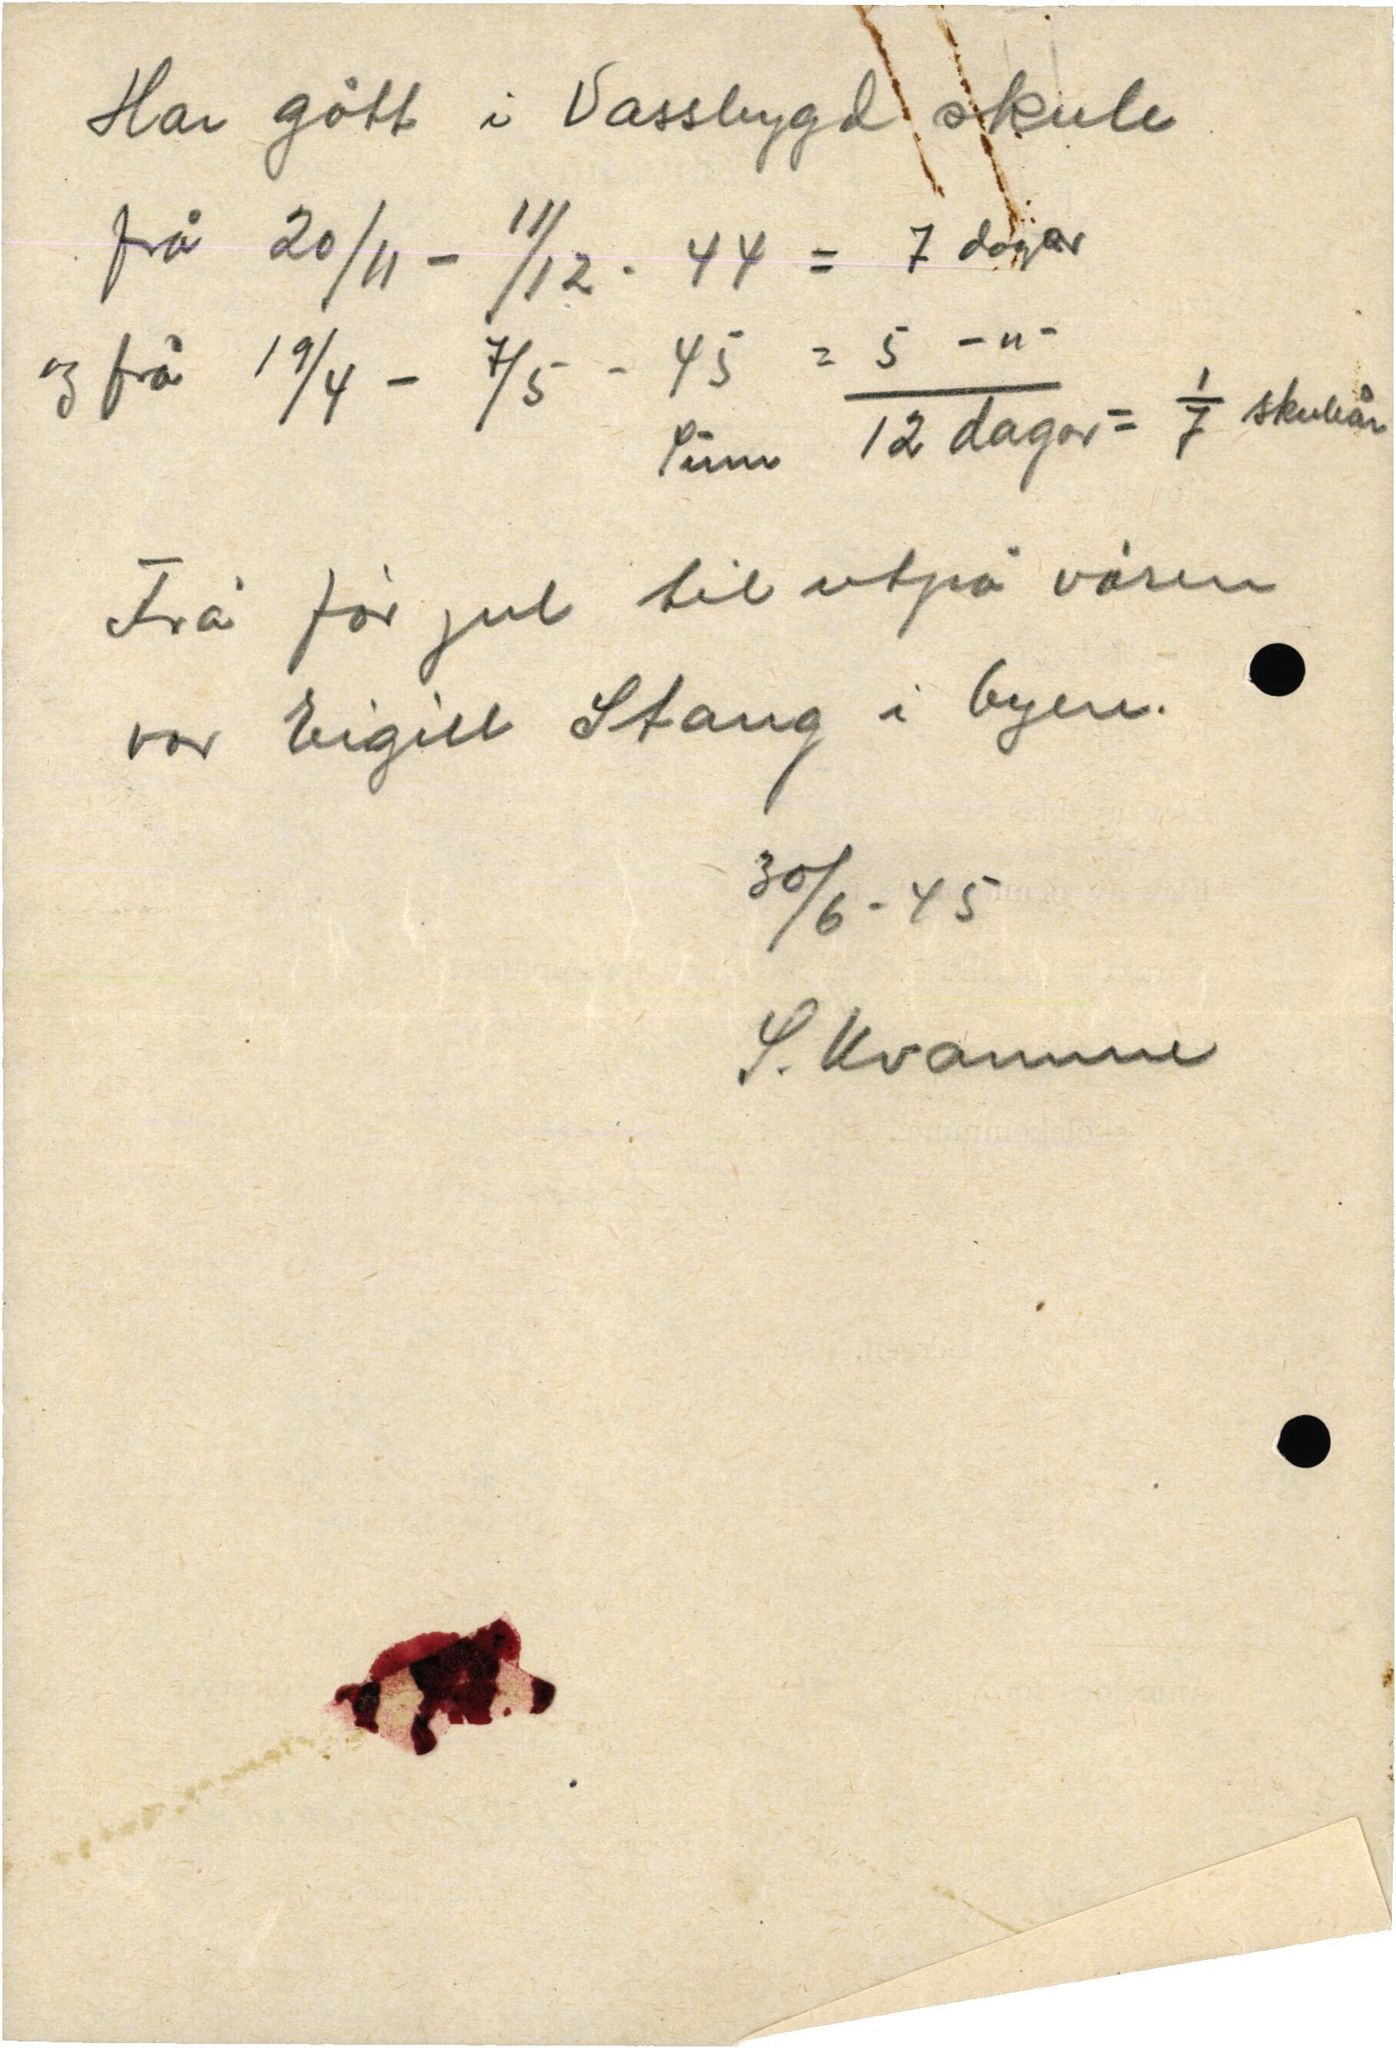 Har gått i Vassbygd skule
frå 20/11 - 11/12 - 44 = 7 dagar
og frå 19/4 - 7/5 - 45 = 5 -"-
Sum 12 dagar = 1/7 skuleår
Frå før jul til utpå våren
var Eigill Stang i byen.
30/6 - 45
S. Kvamme